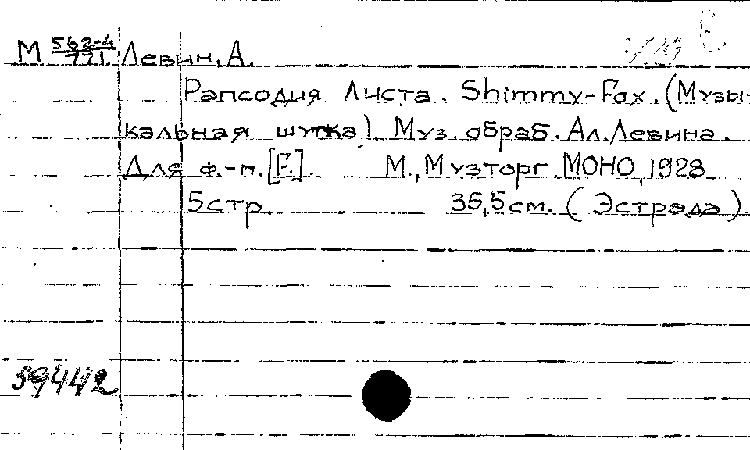 М 562-4/771 Левин, А.
Рапсодия Листа. Shimmy-Fox. (Музы-
кальная шутка). Муз. обраб. Ал. Левина.
Для ф.-п. [F.] М., Музторг МОНО, 1928
5 стр 35,5 см. (Эстрада)
59442